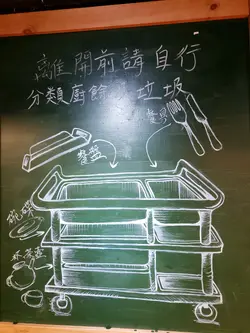 離開前請自行
分類廚餘、垃圾
餐具
餐盤
碗碟